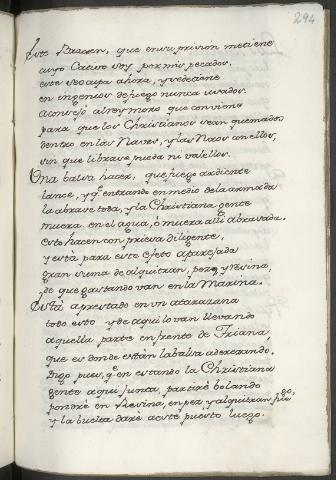 294
Este Bracen, que en su prision me tiene
cuyo Cativo soy por mis pecados.
este se ocupa ahora, y se detiene
en ingenios de fuego nunca usados.
Aconsejó al rey moro que conviene
para que los Christianos sean quemados
dentro en las Naves, y las Naos con ellos,
sin que librarse pueda ni valellos.
Una balsa hacer, que fuego ardiente
lance, y q.e entrando en medio de la armada
la abrase toda, y la Christiana gente
muera en el agua, ó muera alli abrasada.
Esto hacen con priesa diligente,
y está para este efeto aparejada
gran suma de alquitran, pez, y resina,
de que gastando van en la Marina.
Está aprestado en un atarazana
todo esto y de aqui lo van llevando
aquella parte enfrente de Triana,
que es donde están la balsa aderezando.
Digo pues, q.e en estando la Christiana
gente aqui junta, partiré bolando
pondré en Resina, en pez, y alquitran fuego,
y la buelta daré a este puesto luego.